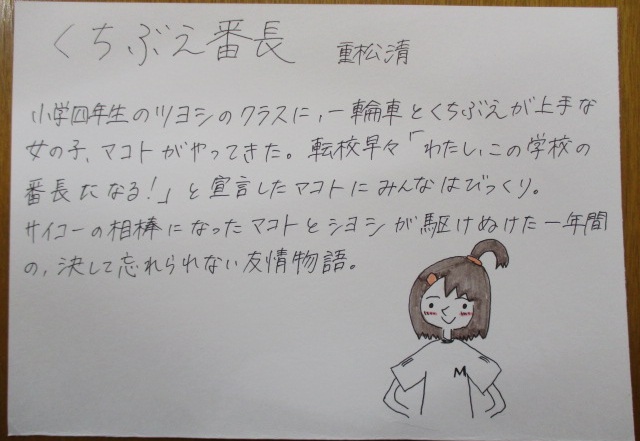 くちぶえ番長 重松清
小学四年生のツヨシのクラスに、一輪車とくちぶえが上手な
女の子、マコトがやってきた。転校早々「わたし、この学校の
番長になる!」と宣言したマコトにみんなはびっくり。
サイコーの相棒になったマコトとシヨシが駆けぬけた一年間
の、決して忘れられない友情物語。
M